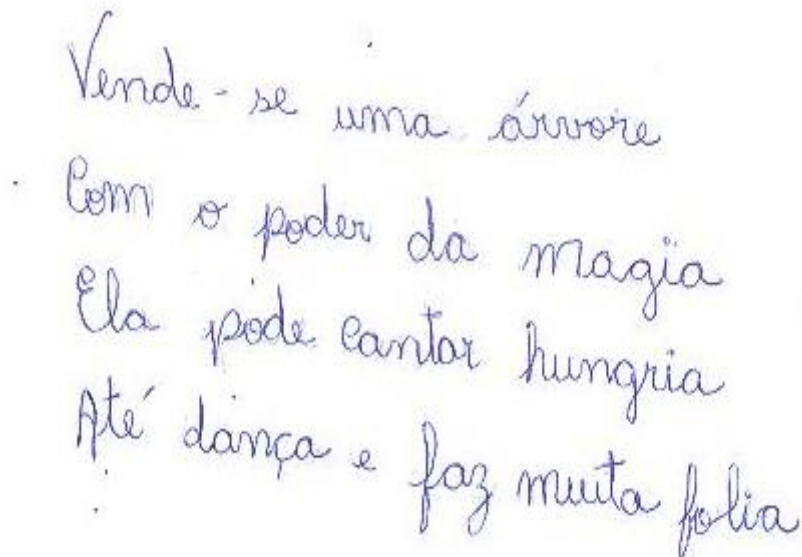 Vende-se uma árvore
Com o poder da magia
Ela pode cantar hungria
Até dança e faz muita folia